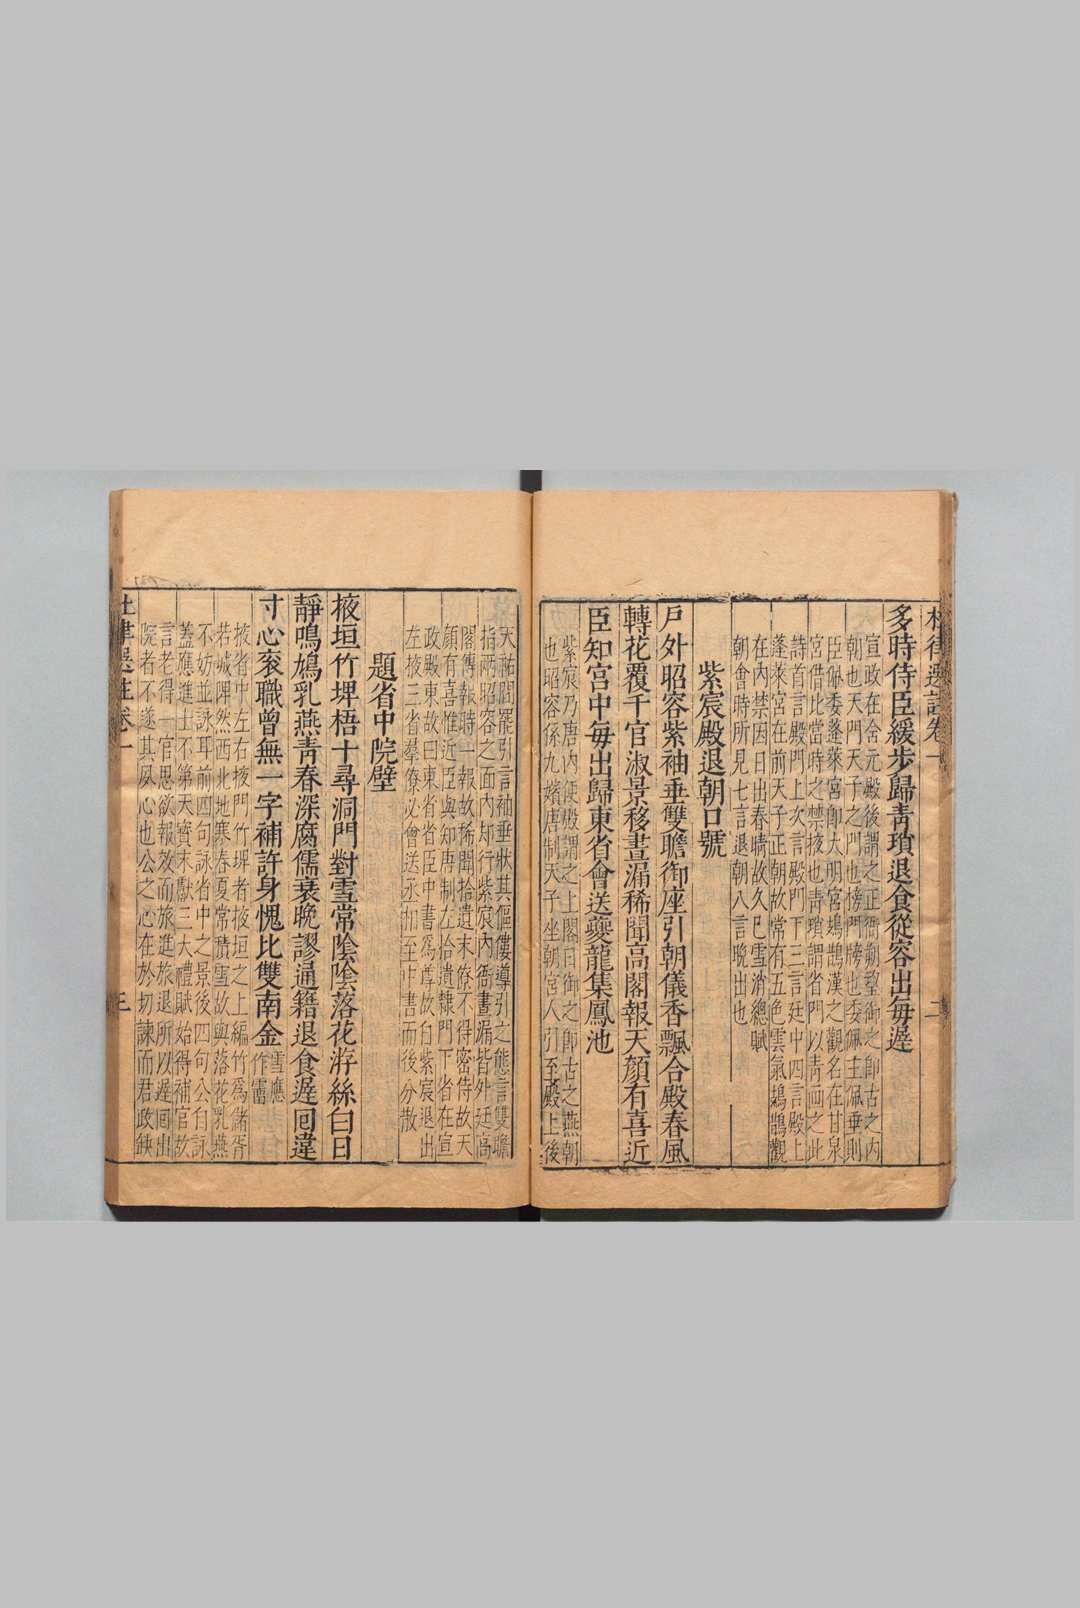 杜律選註卷一
二
多時侍臣緩步歸青瑣退食從容出每遲
宣政在含元殿後謂之正衙朔望御之即古之內
朝也天門天子之門也榜門牓也委佩主佩垂則
臣佩委蓬萊宮即大明宮鳷鵲漢之觀名在甘泉
宮借比當時之禁掖也青瑣謂省門以青画之此
詩首言殿門上次言殿門下三言廷中四言殿上
蓬萊宮在前天子正朝故常有五色雲氣鳷鵲觀
在內禁因日出春晴故久已雪消總賦
朝會時所見七言退朝八言晩出也
紫宸殿退朝口號
戶外昭容紫袖垂雙瞻御座引朝儀香飄合殿春風
轉花覆千官淑景移晝漏稀聞高閣報天顏有喜近
臣知宮中每出歸東省會送夔龍集鳳池
紫宸乃唐內便殿謂之上閣日御之即古之燕朝
也昭容係九嬪唐制天子坐朝宮人引至殿上後
天祐間罷引言袖垂狀其傴僂導引之態言雙瞻
指兩昭容之面內知行紫宸內衙晝漏皆外廷高
閣傳報時一報故稀聞拾遺末僚不得密侍故天
顏有喜惟近臣與知再制左拾遺隸門下省在宣
政殿東故曰東省省臣中書爲尊故自紫宸退出
左掖三省羣僚必會送丞相至中書而後分散
題省中院壁
掖垣竹埤梧十尋洞門對雪常陰陰落花游絲白日
靜鳴鳩乳燕青春深腐儒衰晩謬通籍退食遲囘違
寸心衮職曾無一字補許身愧比雙南金 雪應作霤
掖省中左右掖門竹埤者掖垣之上編竹爲儲胥
若城陴然西北地寒春夏常積雪故與落花乳燕
不妨並詠耳前四句詠省中之景後四句公自詠
蓋應進士不第天寶末獻三大禮賦始得補官故
言老得一官思欲報效而旅進旅退所以遲囘出
院者不遂其夙心也公之心在於切諫而君政缺
杜律選註卷一
三